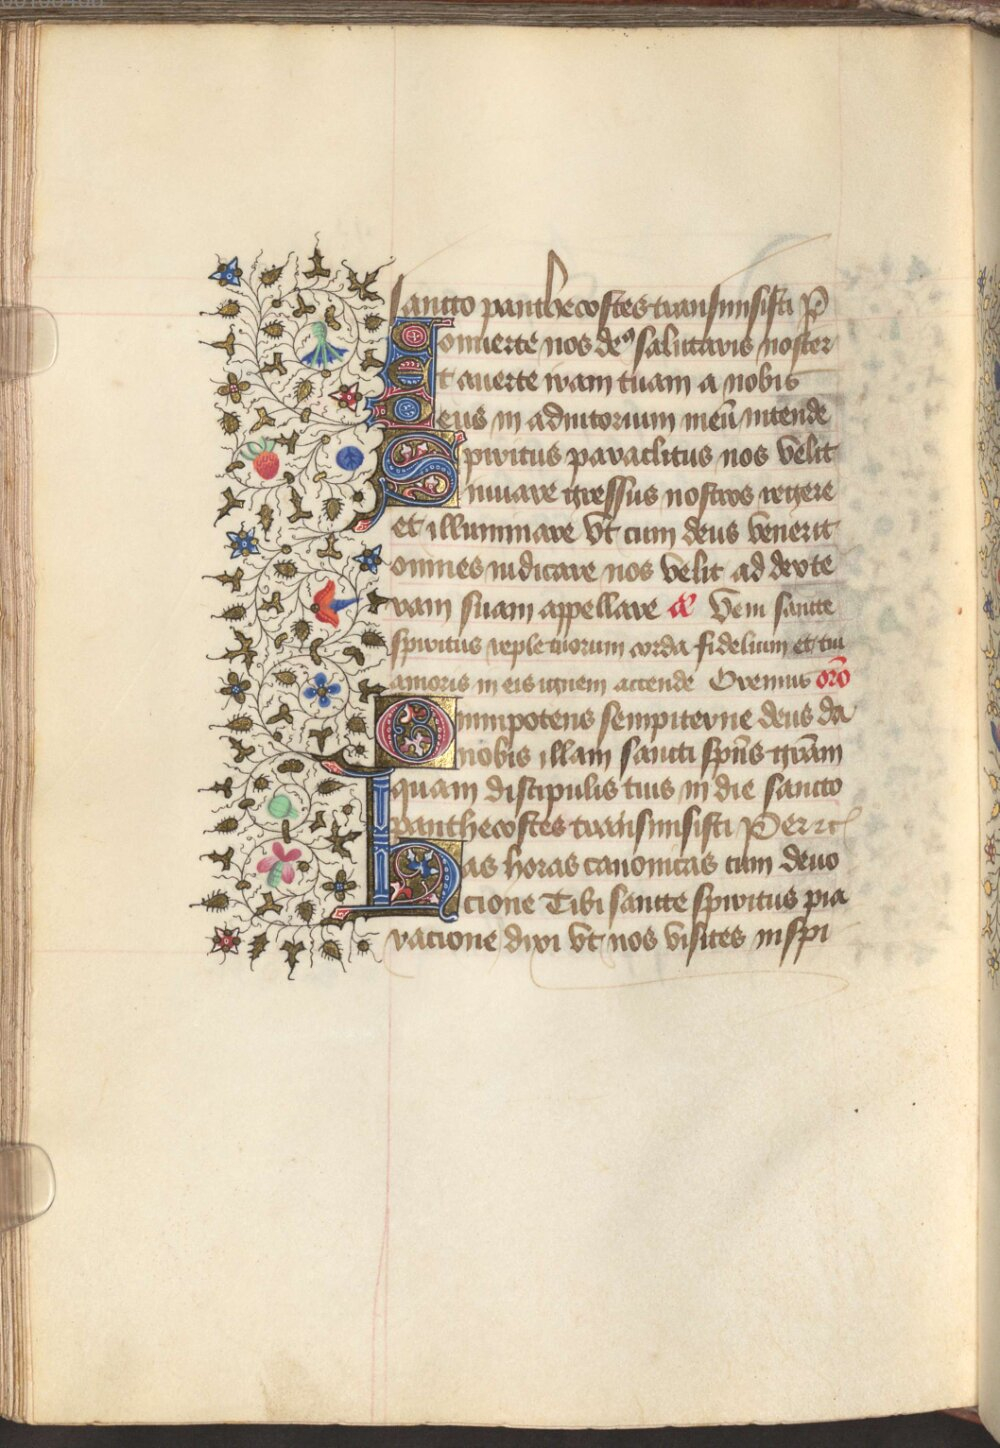 sancto panthecostes transmisisti P
Conuerte nos deꝰ salutaris noster
Et auerte iram tuam a nobis
Deus in adiutorium meū intende
Spiritus paraclitus nos velit
iuuare gressus nostros regere
et illuminare vt cum deus venerit
omnes iudicare nos velit ad dexte
ram suam appellare a͞ Veni sancte
spiritus reple tuorum corda fidelium et tui
amoris in eis ignem accende Oremus oro͞
Omnipotens sempiterne deus da
nobis illam sancti spūs gr̄am
quam discipulis tuis in die sancto
panthecostes transmisisti Per
Has horas canonicas cum deuo
cione Tibi sancte spiritus pia
racione dixi vt nos visites inspi